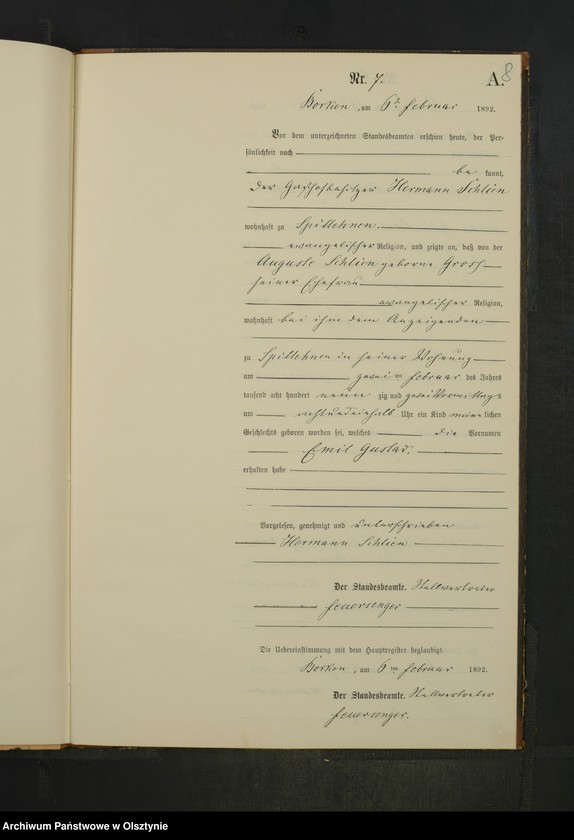 Nr. 7.
A.
8
Borken, am 6ten Februar 1892.
Vor dem unterzeichneten Standesbeamten erschien heute, der Per-
sönlichkeit nach
be kannt,
der Gasthofbesitzer Hermann Schlien
wohnhaft zu Spittehnen.
evangelischer Religion, und zeigte an, daß von der
Auguste Schlien geborne Groß
seiner Ehefrau
evangelischer Religion,
wohnhaft bei ihm dem Anzeigenden
zu Spittehnen in seiner Wohnung
am zweiten Februar des Jahres
tausend acht hundert neun zig und zwei Vormittags
um achtundeinhalb Uhr ein Kind männlichen
Geschlechts geboren worden sei, welches die Vornamen
Emil Gustav.
erhalten habe
Vorgelesen, genehmigt und unterschrieben
Hermann Schlien
Der Standesbeamte. Stellvertreter
Feuersenger
Die Uebereinstimmung mit dem Hauptregister beglaubigt.
Borken, am 6ten Februar 1892.
Der Standesbeamte. Stellvertreter
Feuersenger.
Archiwum Państwowe w Olsztynie